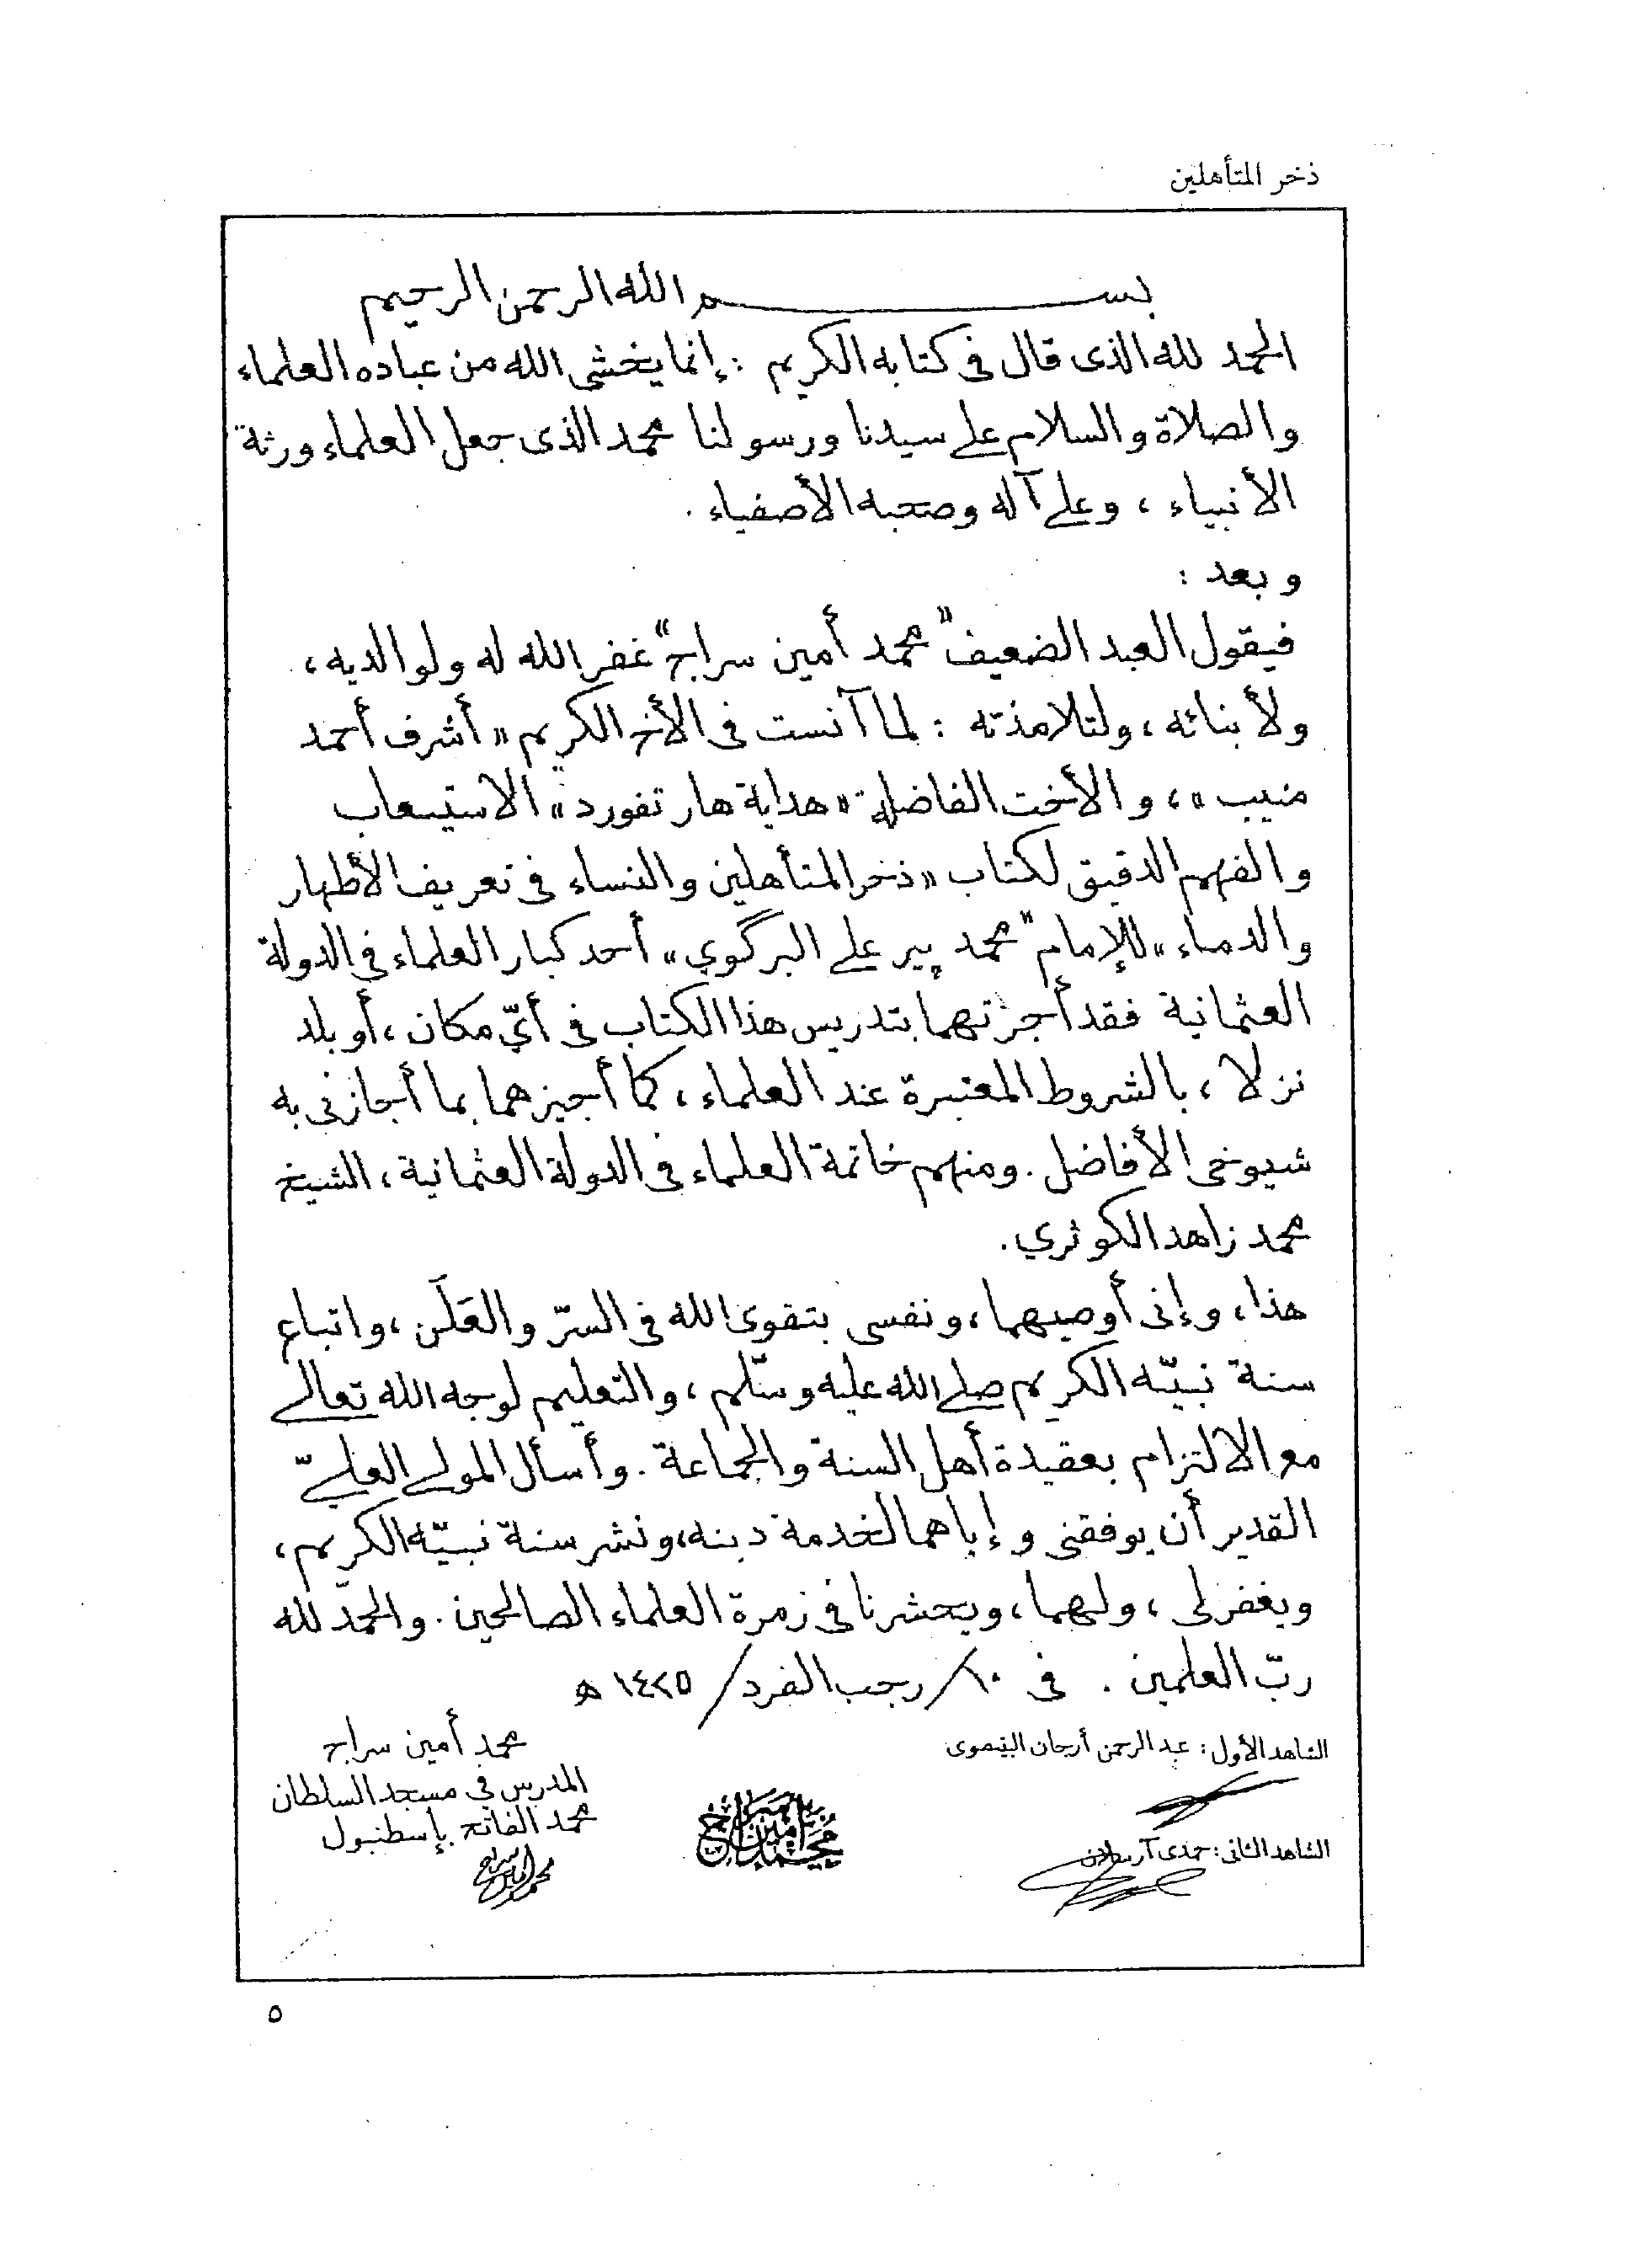 ذخر المتأهلين
بسم الله الرحمن الرحيم
الحمد لله الذى قال فى كتابه الكريم : إنما يخشى الله من عباده العلماء
والصلاة والسلام على سيدنا ورسولنا محمد الذى جعل العلماء ورثة
الأنبياء ، وعلى آله وصحبه الأصفياء .
وبعد :
فيقول العبد الضعيف "محمد أمين سراج" غفر الله له ولوالديه ،
ولأبنائه ، ولتلامذته : لما آنست فى الأخ الكريم "أشرف أحمد
منيب" ، والأخت الفاضلة "هداية هارتفورد" الاستيعاب
والفهم الدقيق لكتاب "ذخر المتأهلين والنساء فى تعريف الأطهار
والدماء" للإمام "محمد پير على البرگوي" أحد كبار العلماء فى الدولة
العثمانية فقد أجزتهما بتدريس هذا الكتاب فى أيّ مكان ، أو بلد
نزلا ، بالشروط المعتبرة عند العلماء ، كما أجيزهما بما أجازنى به
شيوخى الأفاضل . ومنهم خاتمة العلماء فى الدولة العثمانية ، الشيخ
محمد زاهد الكوثري .
هذا ، وإنى أوصيهما ، ونفسى بتقوى الله فى السرّ والعَلَن ، واتباع
سنة نبيّه الكريم صلى الله عليه وسّلم ، والتعليم لوجه الله تعالى
مع الالتزام بعقيدة أهل السنة والجماعة . وأسأل المولى العليّ
القدير أن يوفقنى وإياهما لخدمة دينه ، ونشر سنة نبيّه الكريم ،
ويغفر لى ، ولهما ، ويحشرنا فى زمرة العلماء الصالحين . والحمد لله
ربّ العلمين . فى ١٠/رجب الفرد/١٤٢٥ ھ
الشاهد الأول : عبد الرحمن أرجان
الشاهد الثانى : حمدى آرسلان
محمد أمين سراج
المدرس فى مسجد السلطان
محمد الفاتح بإسطنبول
محمد أمين سراج
محمد أمين سراج
٥